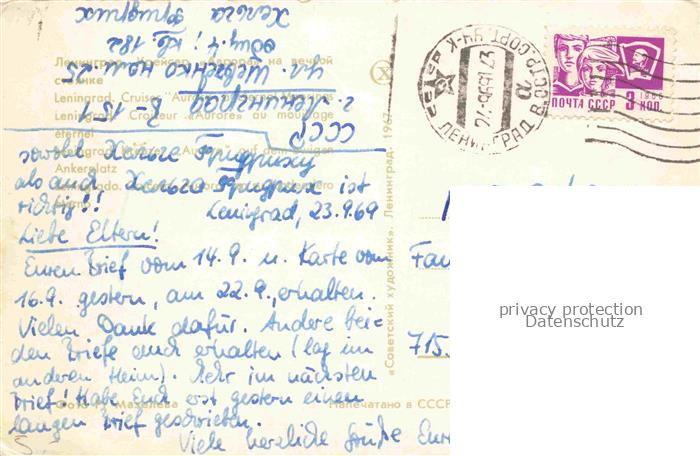 Хельга
Фридрих
общ. 4; кв. 182
ул. Шевченко ном. 25
г. Ленинград В-151
СССР
Ленинград. Крейсер «Аврора» на вечной
стоянке
Leningrad. Cruiser "Aurora"
Leningrad. Croiseur «Aurore» au mouillage
éternel
Ankerplatz
sowohl Хельге Фридриху
als auch Хельга Фридрих ist
richtig!!
Leningrad, 23.9.69
Liebe Eltern!
Euren Brief vom 14.9. u. Karte vom
16.9. gestern, am 22.9., erhalten.
Vielen Dank dafür. Andere bei-
den Briefe auch erhalten (lag im
anderen Heim). Mehr im nächsten
Brief! Habe Euch erst gestern einen
langen Brief geschrieben.
Viele herzliche Grüße Eure
Напечатано в СССР
«Советский художник». Ленинград. 1967
ЛЕНИНГРАД
ПОЧТА СССР 3 КОП.
1966
Fam
715
privacy protection
Datenschutz